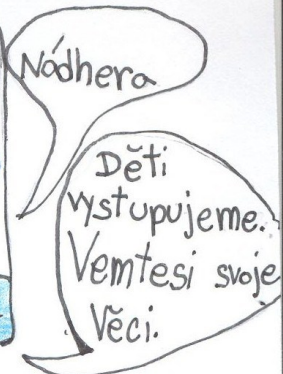 Nádhera
Děti
vystupujeme.
Vemtesi svoje
Věci.